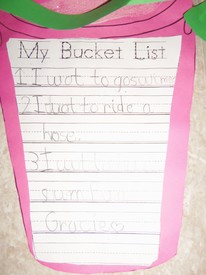 My Bucket List
1 I wat to goswimming
2 I wat to ride a
hose.
3 I
Gracie